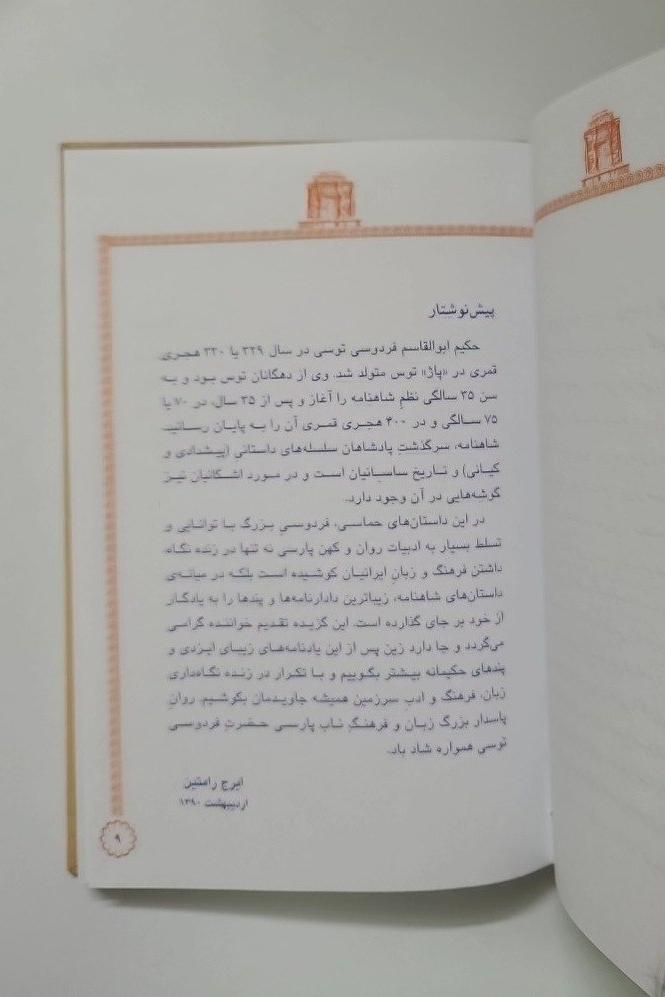 پیش‌نوشتار
حکیم ابوالقاسم فردوسی توسی در سال ۳۲۹ یا ۳۳۰ هجری
قمری در «پاژ» توس متولد شد. وی از دهگانان توس بود و به
سن ۳۵ سالگی نظمِ شاهنامه را آغاز و پس از ۳۵ سال، در ۷۰ یا
۷۵ سالگی و در ۴۰۰ هجری قمری آن را به پایان رسانید.
شاهنامه، سرگذشتِ پادشاهان سلسله‌های داستانی (پیشدادی و
کیانی) و تاریخ ساسانیان است و در مورد اشکانیان نیز
گوشه‌هایی در آن وجود دارد.
در این داستان‌های حماسی، فردوسیِ بزرگ با توانایی و
تسلط بسیار به ادبیات روان و کهن پارسی نه تنها در زنده نگاه
داشتن فرهنگ و زبانِ ایرانیان کوشیده است بلکه در میانه‌ی
داستان‌های شاهنامه، زیباترین دادارنامه‌ها و پندها را به یادگار
از خود بر جای گذارده است. این گزیده تقدیم خواننده گرامی
می‌گردد و جا دارد زین پس از این یادنامه‌های زیبای ایزدی و
پندهای حکیمانه بیشتر بگوییم و با تکرار در زنده نگاه‌داری
زبان، فرهنگ و ادبِ سرزمین همیشه جاویدمان بکوشیم. روانِ
پاسدار بزرگ زبان و فرهنگِ ناب پارسی حضرتِ فردوسی
توسی همواره شاد باد.
ایرج رامتین
اردیبهشت ۱۳۹۰
۹